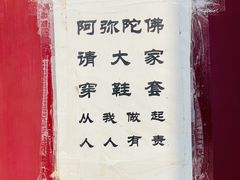 阿弥陀佛
请大家
穿鞋套
从我做起
人人有责